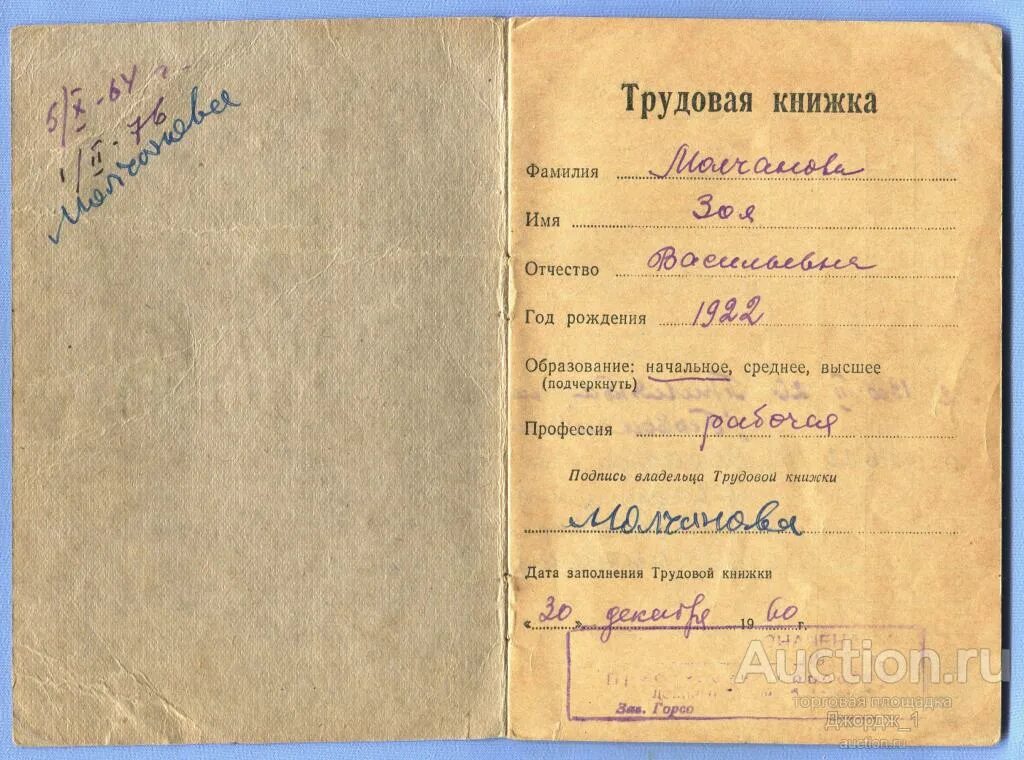 5/X-64 г.
1/II-76
Молчанова
Трудовая книжка
Фамилия Молчанова
Имя Зоя
Отчество Васильевна
Год рождения 1922
Образование: начальное, среднее, высшее
(подчеркнуть)
Профессия рабочая
Подпись владельца Трудовой книжки
Молчанова
Дата заполнения Трудовой книжки
«30» декабря 1960 г.
Зав. Горсо
Auction.ru
торговая площадка
Джордж_1
auction.ru